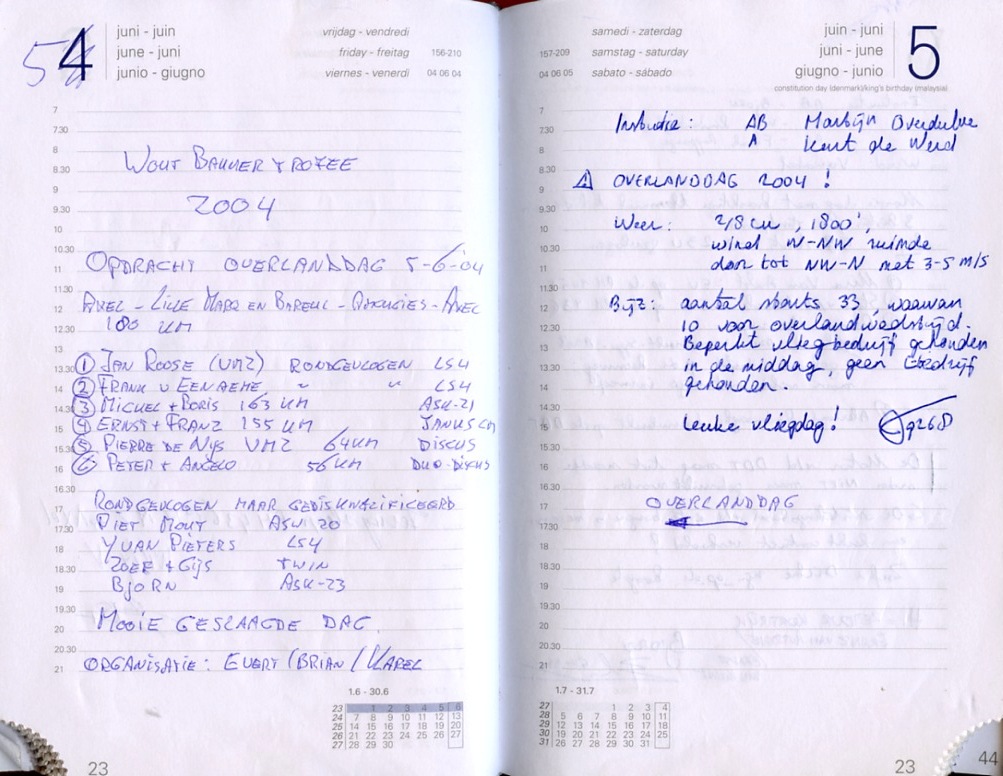 4
juni - juin
june - juni
junio - giugno
vrijdag - vendredi
friday - freitag 156-210
viernes - venerdì 04 06 04
7
7.30
8
8.30
9
9.30
10
10.30
11
11.30
12
12.30
13
13.30
14
14.30
15
15.30
16
16.30
17
17.30
18
18.30
19
19.30
20
20.30
21
WOUT BAKKER TROFEE
2004
OPDRACHT OVERLANDDAG 5-6-'04
AXEL - LILLE MARQ EN BAREUL - - AXEL
180 KM
① JAN ROOSE (VMZ) RONDGEVLOGEN LS4
② FRANK V EENAEME, " " LS4
③ MICHEL + BORIS 163 KM ASK-21
④ ERNST + FRANZ 155 KM JANUS CM
⑤ PIERRE DE NYS VMZ 64KM DISCUS
⑥ PETER + ANGELO 56KM DUO-DISCUS
RONDGEVLOGEN MAAR GEDISKWALIFICEERD
PIET MOUT ASW 20
YVAN PIETERS LS4
ZOEF & GIJS TWIN
BJORN ASK-23
MOOIE GESLAAGDE DAG.
ORGANISATIE: EVERT / BRIAN / KAREL
1.6 - 30.6
23 1 2 3 4 5 6
24 7 8 9 10 11 12 13
25 14 15 16 17 18 19 20
26 21 22 23 24 25 26 27
27 28 29 30
23
samedi - zaterdag
157-209 samstag - saturday
04 06 05 sabato - sábado
juin - juni
juni - june
giugno - junio
5
constitution day (denmark)/king's birthday (malaysia)
7
7.30
8
8.30
9
9.30
10
10.30
11
11.30
12
12.30
13
13.30
14
14.30
15
15.30
16
16.30
17
17.30
18
18.30
19
19.30
20
20.30
21
Instructie: AB Martijn Overdulve
A Kurt de Werd
OVERLANDDAG 2004 !
Weer: 2/8 cu, 1800',
wind N-NW ruimde
dan tot NW-N met 3-5 m/s
Bijz: aantal starts 33, waarvan
10 voor overlandwedstrijd.
Beperkt vliegbedrijf gehouden
in de middag, geen bedrijf
gehouden.
Leuke vliegdag!
OVERLANDDAG
1.7 - 31.7
27 1 2 3 4
28 5 6 7 8 9 10 11
29 12 13 14 15 16 17 18
30 19 20 21 22 23 24 25
31 26 27 28 29 30 31
23
44